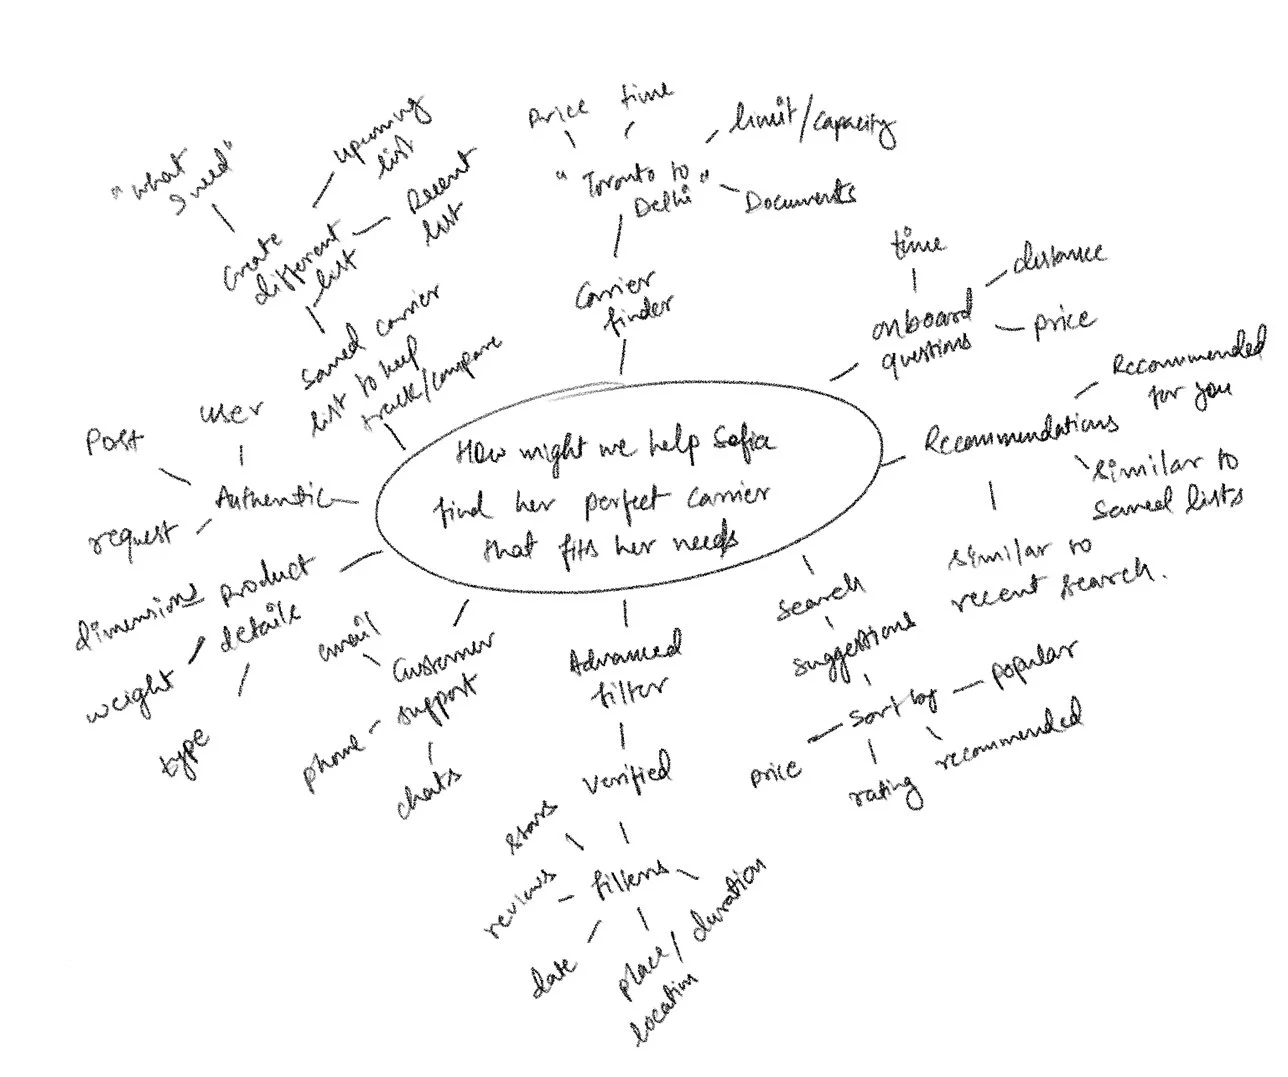 How might we help Sofia
find her perfect carrier
that fits her needs
Carrier
finder
"Toronto to
Delhi"
Price
time
limit/capacity
Documents
onboard
questions
time
distance
price
Recommendations
Recommended
for you
similar to
saved lists
similar to
recent search.
search
suggestions
sort by
popular
recommended
rating
price
Advanced
filter
verified
filters
stars
reviews
date
place/
location
duration
Customer
support
email
phone
chats
product
details
dimensions
weight
type
Authentic
user
Post
request
Saved carrier
list to keep
track/compare
Create
different
list
"what
I need"
upcoming
list
Recent
list